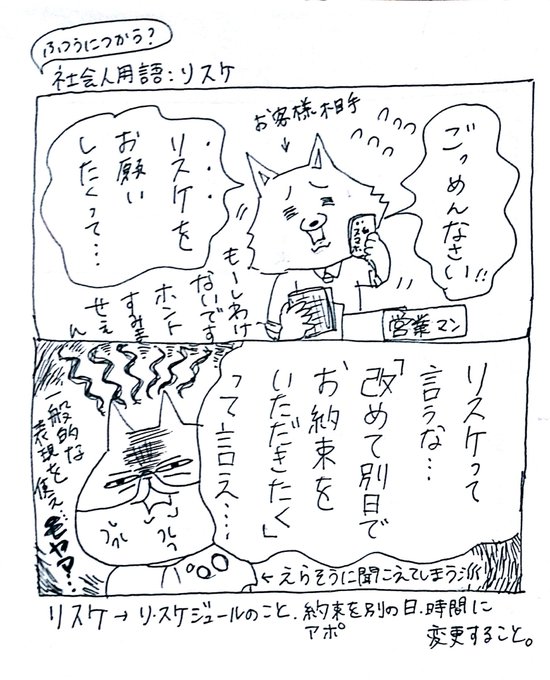 ふつうにつかう?
社会人用語:リスケ
お客様相手
ごっめんなさい!!
リスケを
お願い
したくって…
スマホ
もーしわけ
ないです
ホント
すみま
せぇ
ん
営業マン
リスケって
言うな…
「改めて別日で
お約束を
いただきたく」
って言え…
一般的な
表現を使え…
モヤァ…
プル
プル
←えらそうに聞こえてしまう派
リスケ→リ・スケジュールのこと。約束を別の日、時間に
アポ
変更すること。